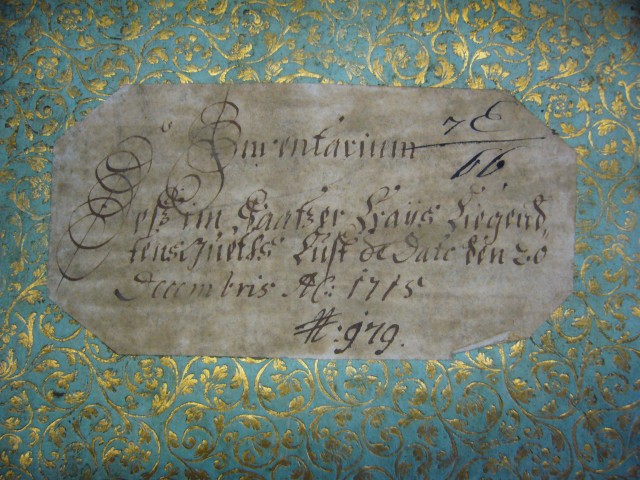 Inventarium 7 E
66
Deß im Saatzer Crayß Liegend-
tens Gueths Lust de dato den 20
Decembris Ao: 1715
N: 979.